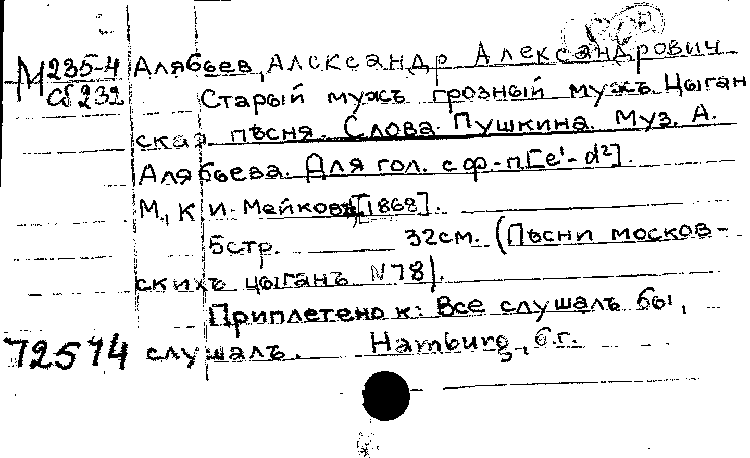 М 235-4 Алябьев, Александр Александрович
Сб 232 Старый мужъ грозный мужъ. Цыган
ская пѣсня. Слова Пушкина. Муз. А.
Алябьева. Для гол. с ф.-п. [e¹-d²].
М., К. И. Мейковъ, [1868].
5стр. 32см. (Пѣсни москов-
скихъ цыганъ N78).
Приплетено к: Все слушалъ бы,
72574 слушалъ. Hamburg, б.г.